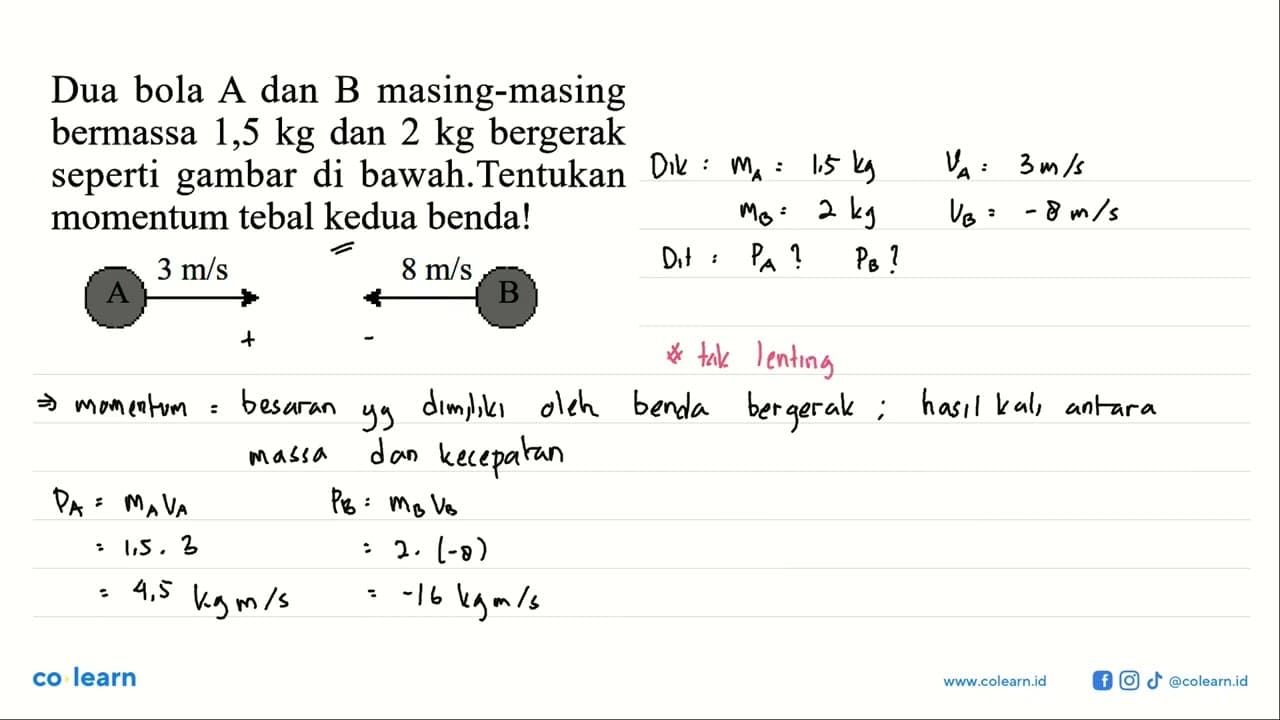 Dua bola A dan B masing-masing
bermassa 1,5 kg dan 2 kg bergerak
seperti gambar di bawah.Tentukan
momentum tebal kedua benda!
3 m/s
8 m/s
A
B
+
-
Dik : mA = 1,5 kg VA = 3 m/s
mB = 2 kg VB = -8 m/s
Dit : PA ? PB ?
* tak lenting
⇒ momentum = besaran yg dimiliki oleh benda bergerak ; hasil kali antara
massa dan kecepatan
PA = mA VA PB = mB VB
= 1,5 . 3 = 2 . (-8)
= 4,5 kg m/s = -16 kg m/s
co learn
www.colearn.id
@colearn.id